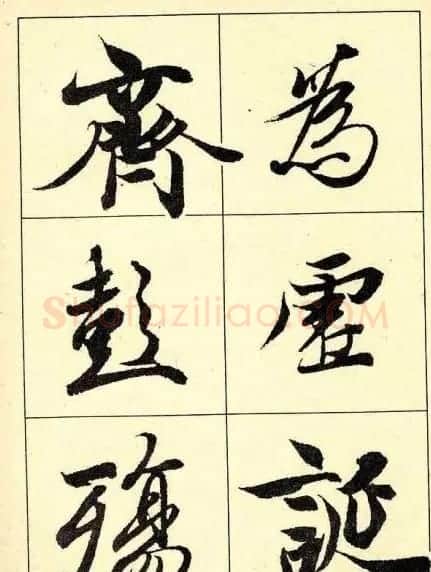 為虛誕
齊彭殤
Shufaziliao.COM